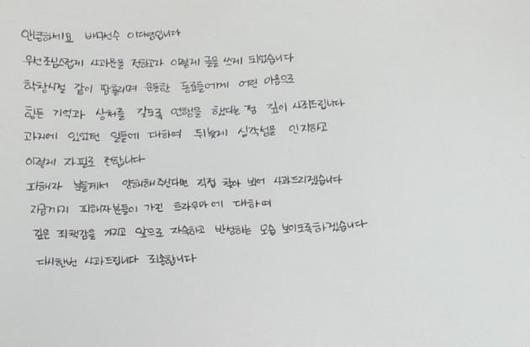 안녕하세요 배구선수 이다영입니다
우선 조심스럽게 사과문을 전하고자 이렇게 글을 쓰게 되었습니다
학창시절 같이 땀흘리며 운동한 동료들에게 어린 마음으로
힘든 기억과 상처를 갖도록 언행을 했다는 점 깊이 사죄드립니다
과거에 있었던 일들에 대하여 뒤늦게 심각성을 인지하고
이렇게 자필로 전합니다
피해자 분들께서 양해해주신다면 직접 찾아 뵈어 사과드리겠습니다
지금까지 피해자분들이 가진 트라우마에 대하여
깊은 죄책감을 가지고 앞으로 자숙하고 반성하는 모습 보이도록 하겠습니다
다시한번 사과드립니다 죄송합니다